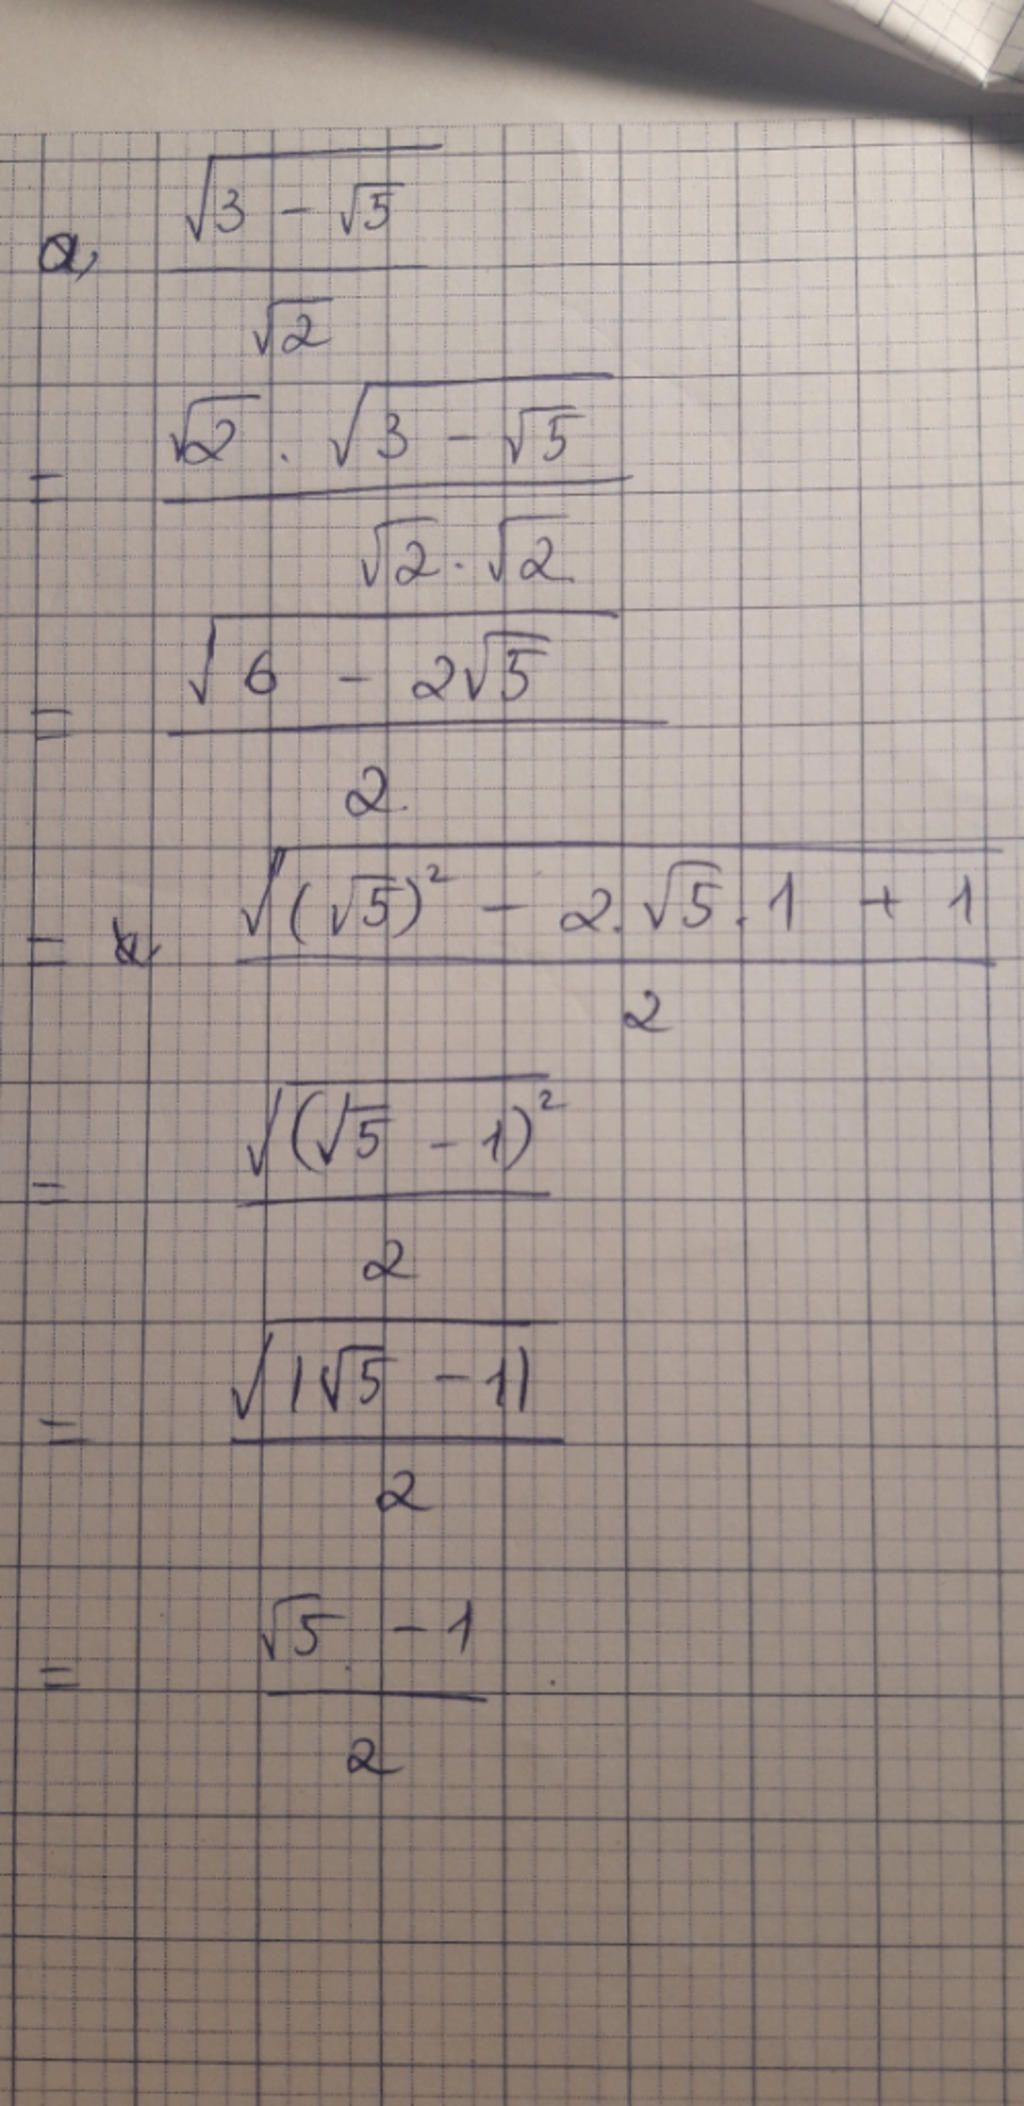 a, \frac{\sqrt{3 - \sqrt{5}}}{\sqrt{2}}
= \frac{\sqrt{2} . \sqrt{3 - \sqrt{5}}}{\sqrt{2} . \sqrt{2}}
= \frac{\sqrt{6 - 2\sqrt{5}}}{2}
= \frac{\sqrt{(\sqrt{5})^2 - 2.\sqrt{5}.1 + 1}}{2}
= \frac{\sqrt{(\sqrt{5} - 1)^2}}{2}
= \frac{\sqrt{|\sqrt{5} - 1|}}{2}
= \frac{\sqrt{5} - 1}{2}.